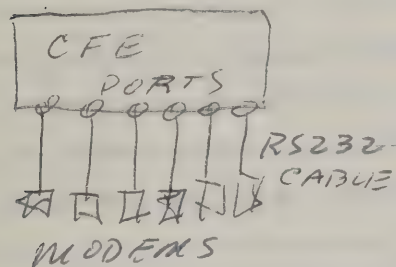 CFE
PORTS
RS232-
CABLE
MODEMS